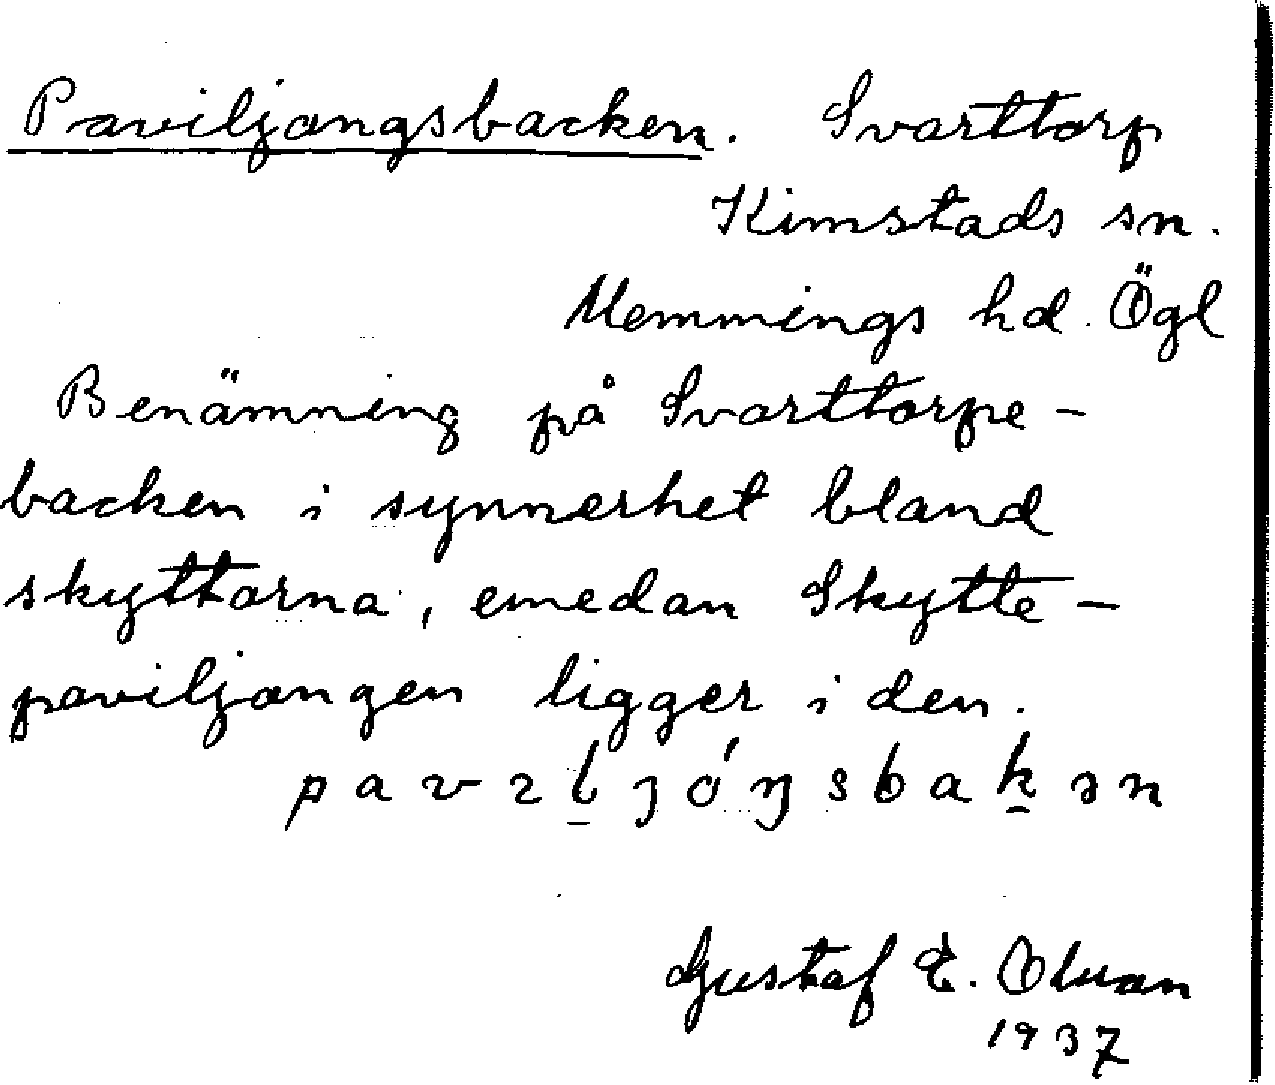 Paviljongsbacken. Svarttorp
Kimstads sn.
Memmings hd. Ögl
Benämning på Svarttorpe-
backen i synnerhet bland
skyttarna, emedan Skytte-
paviljongen ligger i den.
pavıljóŋsbakən
Gustaf E. Olsson
1937